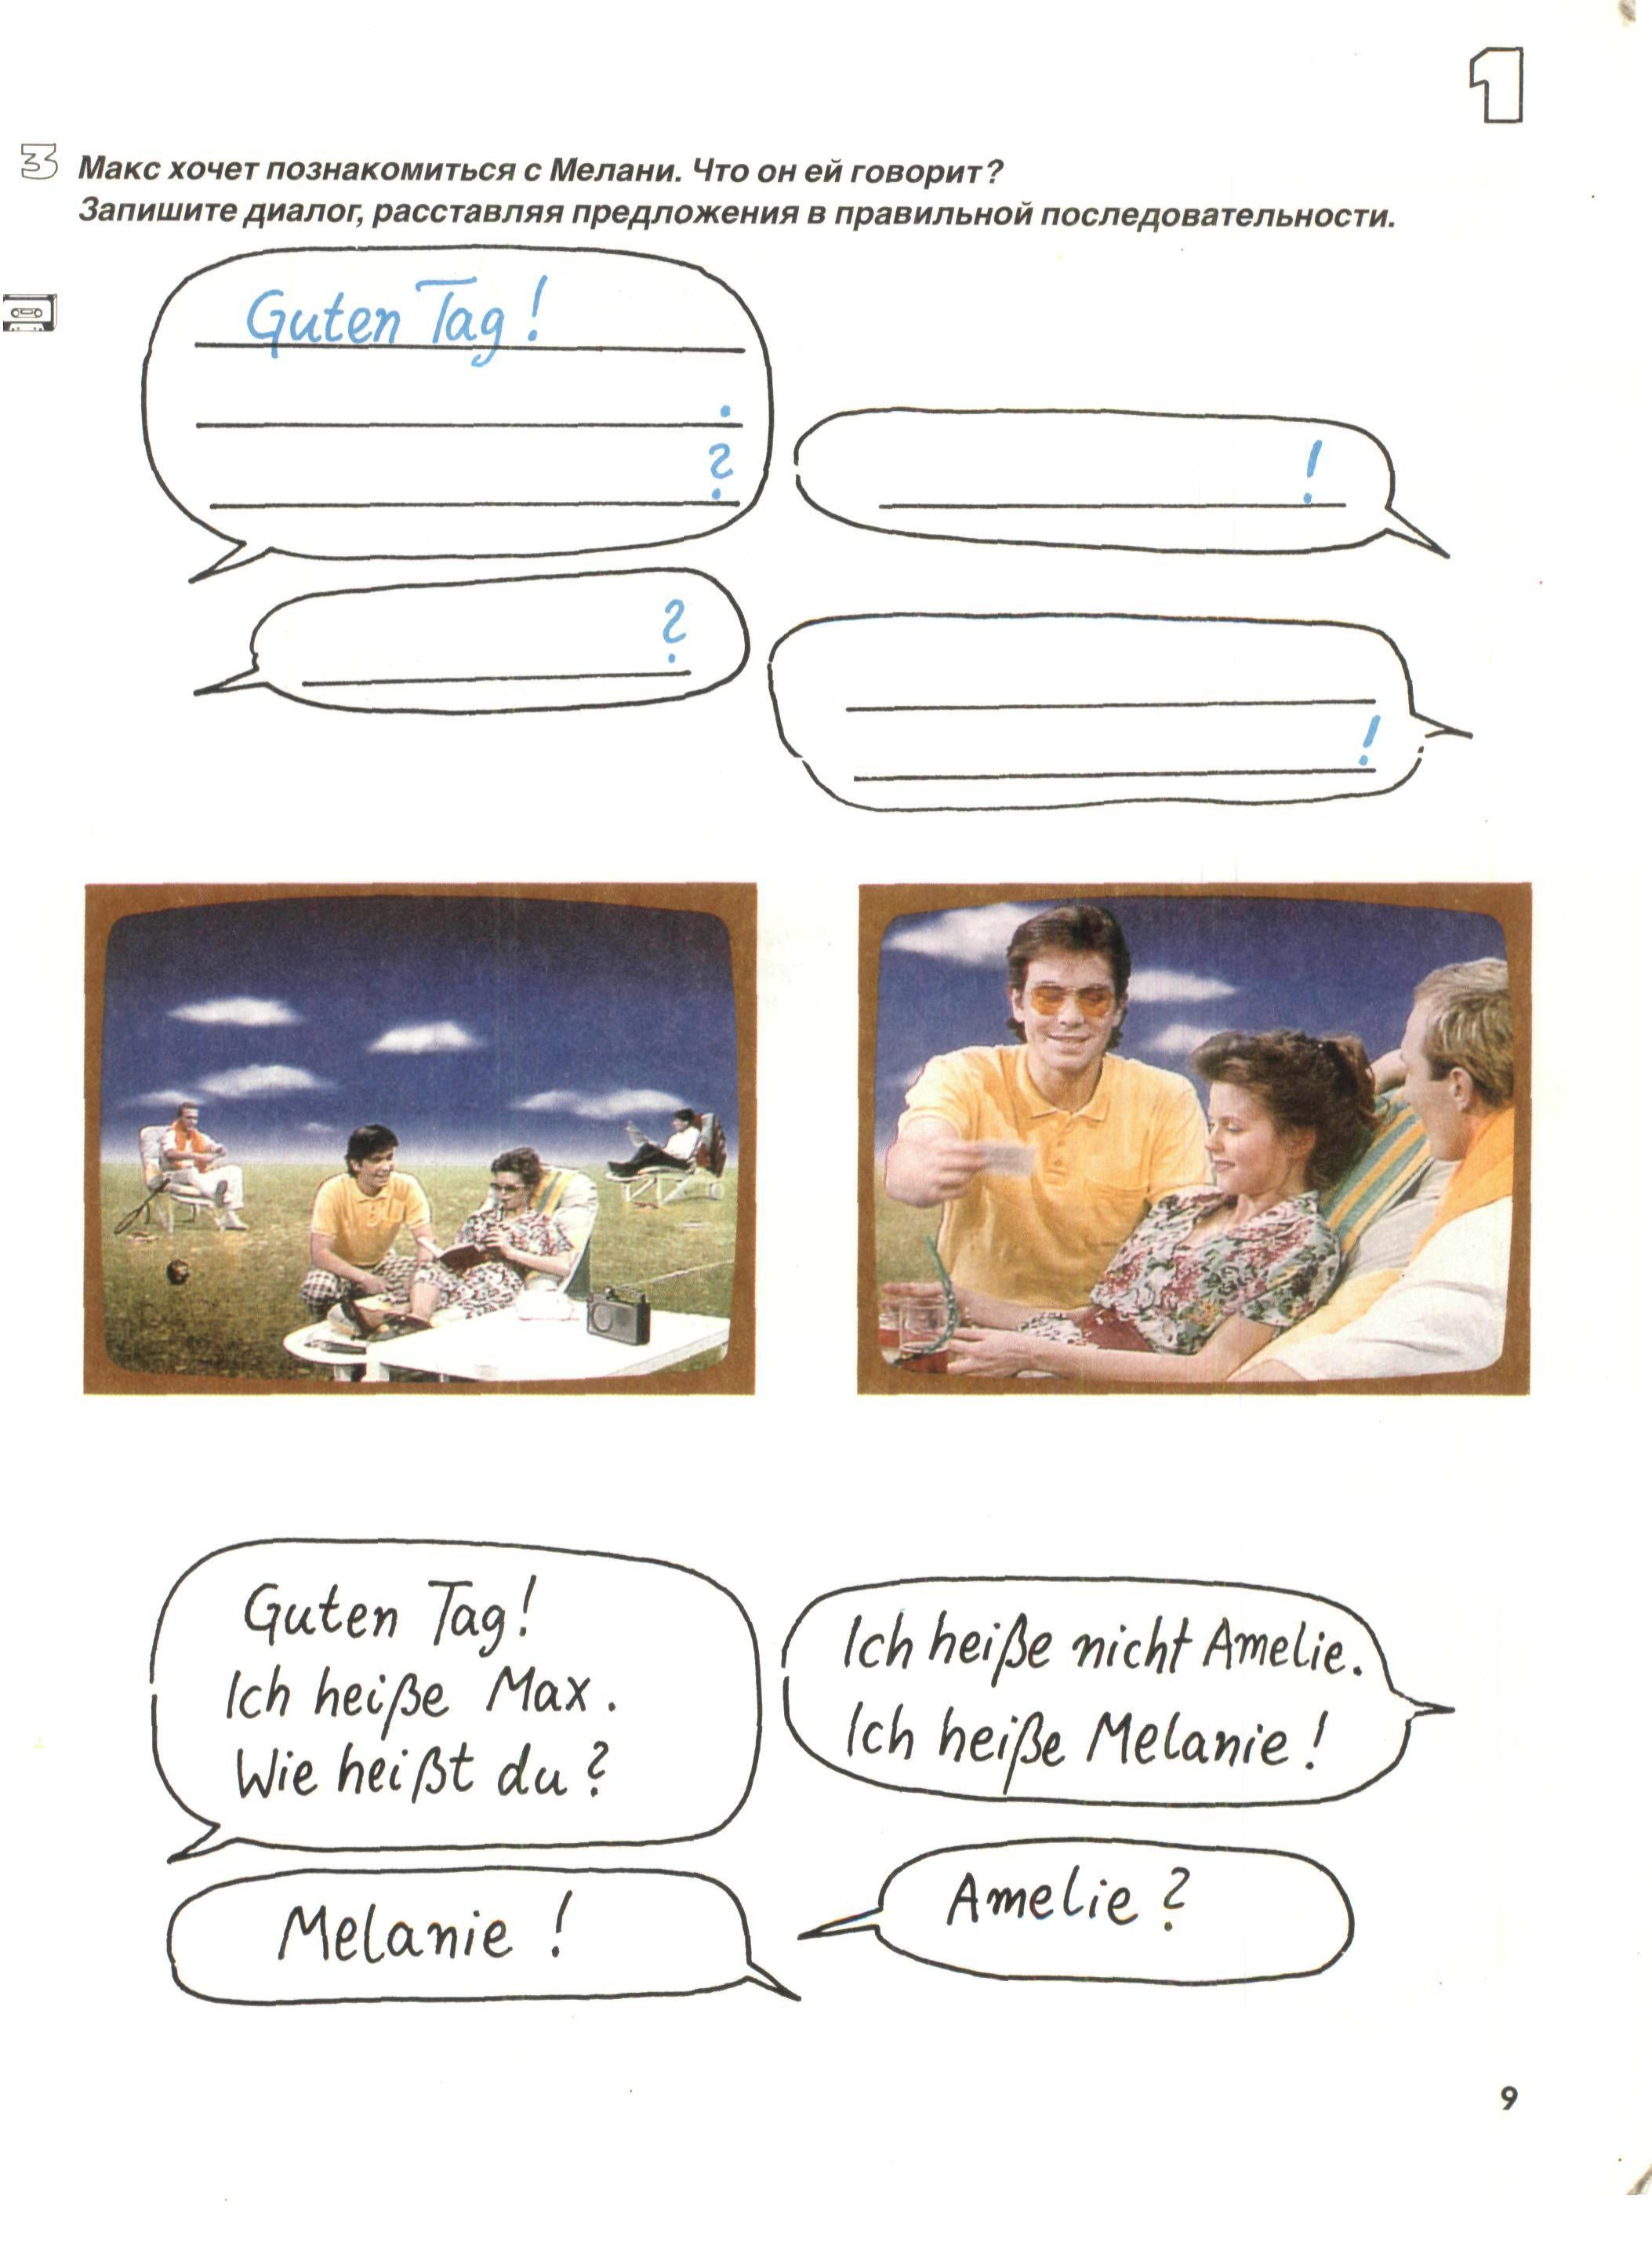 1
3 Макс хочет познакомиться с Мелани. Что он ей говорит?
Запишите диалог, расставляя предложения в правильной последовательности.
Guten Tag!
.
?
!
?
!
Guten Tag!
Ich heiße Max.
Wie heißt du?
Ich heiße nicht Amelie.
Ich heiße Melanie!
Melanie!
Amelie?
9